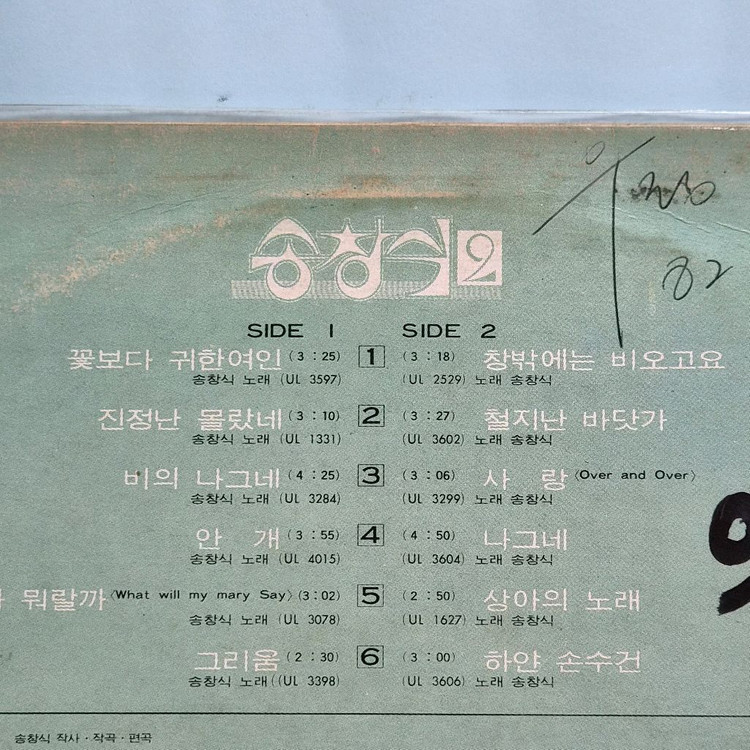 송창식 2
SIDE 1 SIDE 2
꽃보다 귀한여인 (3 : 25) 1 (3 : 18) 창밖에는 비오고요
송창식 노래 (UL 3597) (UL 2529) 노래 송창식
진정난 몰랐네 (3 : 10) 2 (3 : 27) 철지난 바닷가
송창식 노래 (UL 1331) (UL 3602) 노래 송창식
비의 나그네 (4 : 25) 3 (3 : 06) 사 랑 〈Over and Over〉
송창식 노래 (UL 3284) (UL 3299) 노래 송창식
안 개 (3 : 55) 4 (4 : 50) 나그네
송창식 노래 (UL 4015) (UL 3604) 노래 송창식
뭐랄까 〈What will my mary Say〉 (3 : 02) 5 (2 : 50) 상아의 노래
송창식 노래 (UL 3078) (UL 1627) 노래 송창식
그리움 (2 : 30) 6 (3 : 00) 하얀 손수건
송창식 노래 ((UL 3398) (UL 3606) 노래 송창식
송창식 작사·작곡·편곡